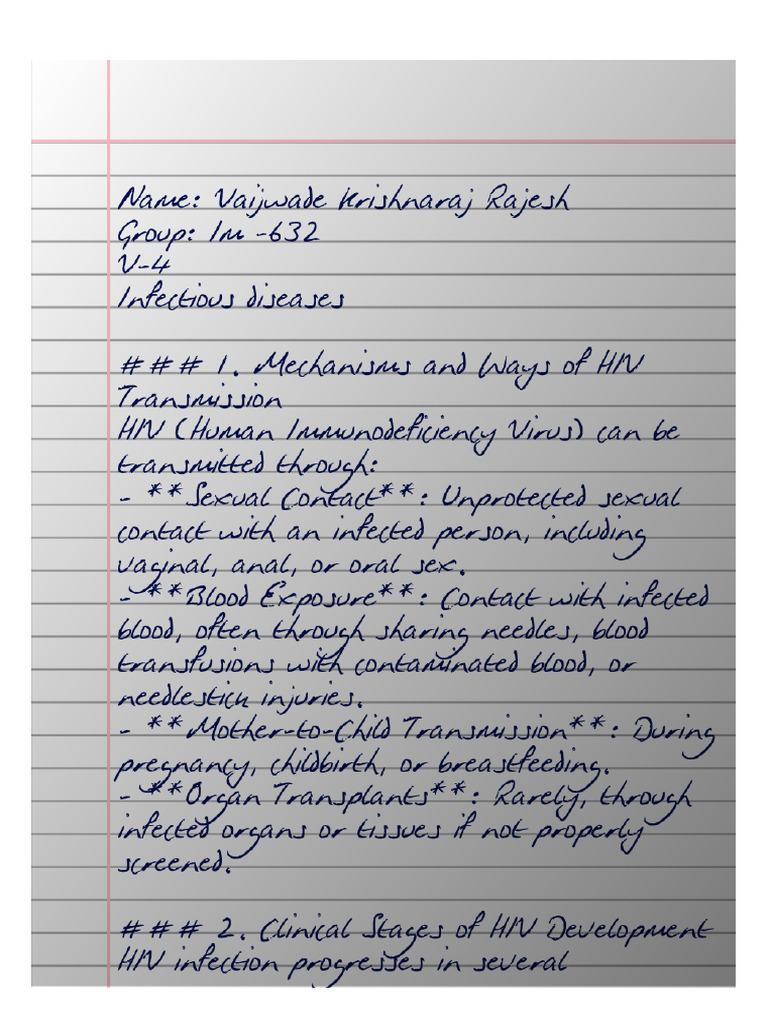 Name: Vaijwade Krishnaraj Rajesh
Group: 1m -632
V-4
Infectious diseases
### 1. Mechanisms and Ways of HIV
Transmission
HIV (Human Immunodeficiency Virus) can be
transmitted through:
- **Sexual Contact**: Unprotected sexual
contact with an infected person, including
vaginal, anal, or oral sex.
- **Blood Exposure**: Contact with infected
blood, often through sharing needles, blood
transfusions with contaminated blood, or
needlestick injuries.
- **Mother-to-Child Transmission**: During
pregnancy, childbirth, or breastfeeding.
- **Organ Transplants**: Rarely, through
infected organs or tissues if not properly
screened.
### 2. Clinical Stages of HIV Development
HIV infection progresses in several